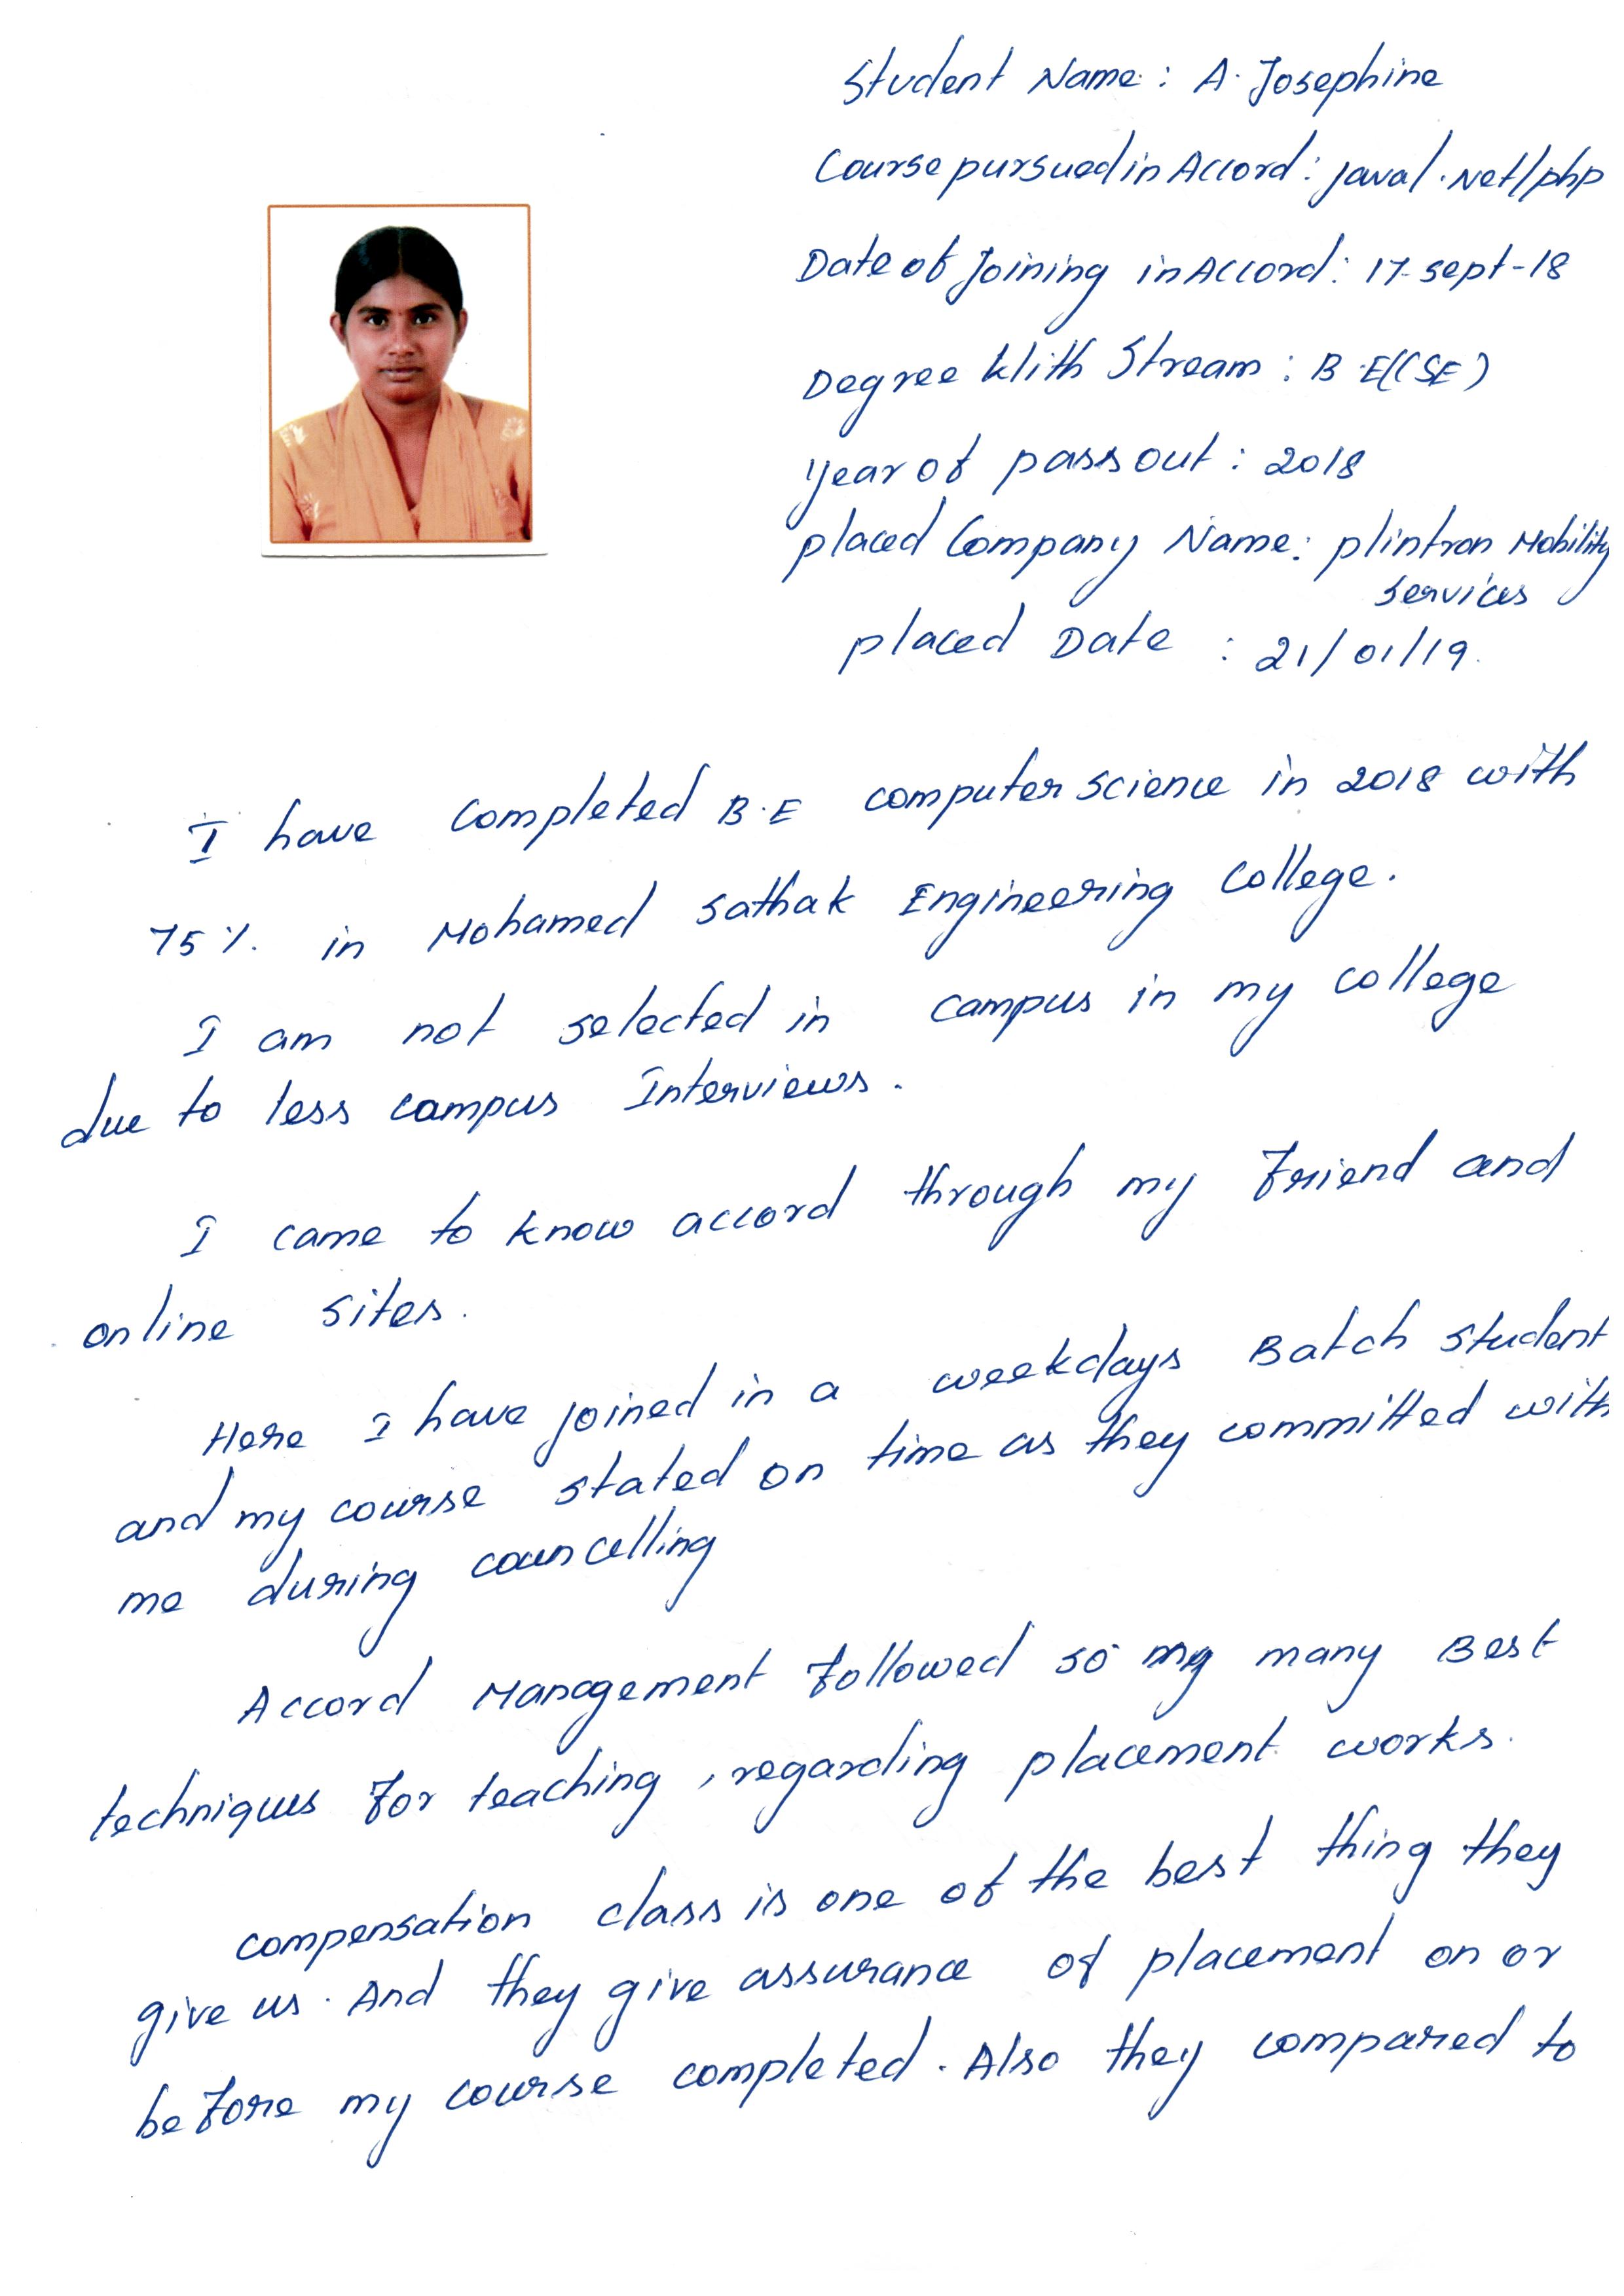 Student Name : A. Josephine
Course pursued in Accord : java/.Net/php
Date of Joining in Accord : 17-sept-18
Degree With Stream : B.E(CSE)
year of pass out : 2018
placed Company Name: plintron Mobility
services
placed Date : 21/01/19.
I have completed B.E computer science in 2018 with
75%. in Mohamed Sathak Engineering College.
I am not selected in campus in my college
due to less campus Interviews.
I came to know accord through my Friend and
online sites.
Here I have joined in a weekdays Batch student
and my course stated on time as they committed with
me during councelling
Accord Management Followed so my many Best
techniques For teaching, regarding placement works.
compensation class is one of the best thing they
give us. And they give assurance of placement on or
before my course completed. Also they compared to